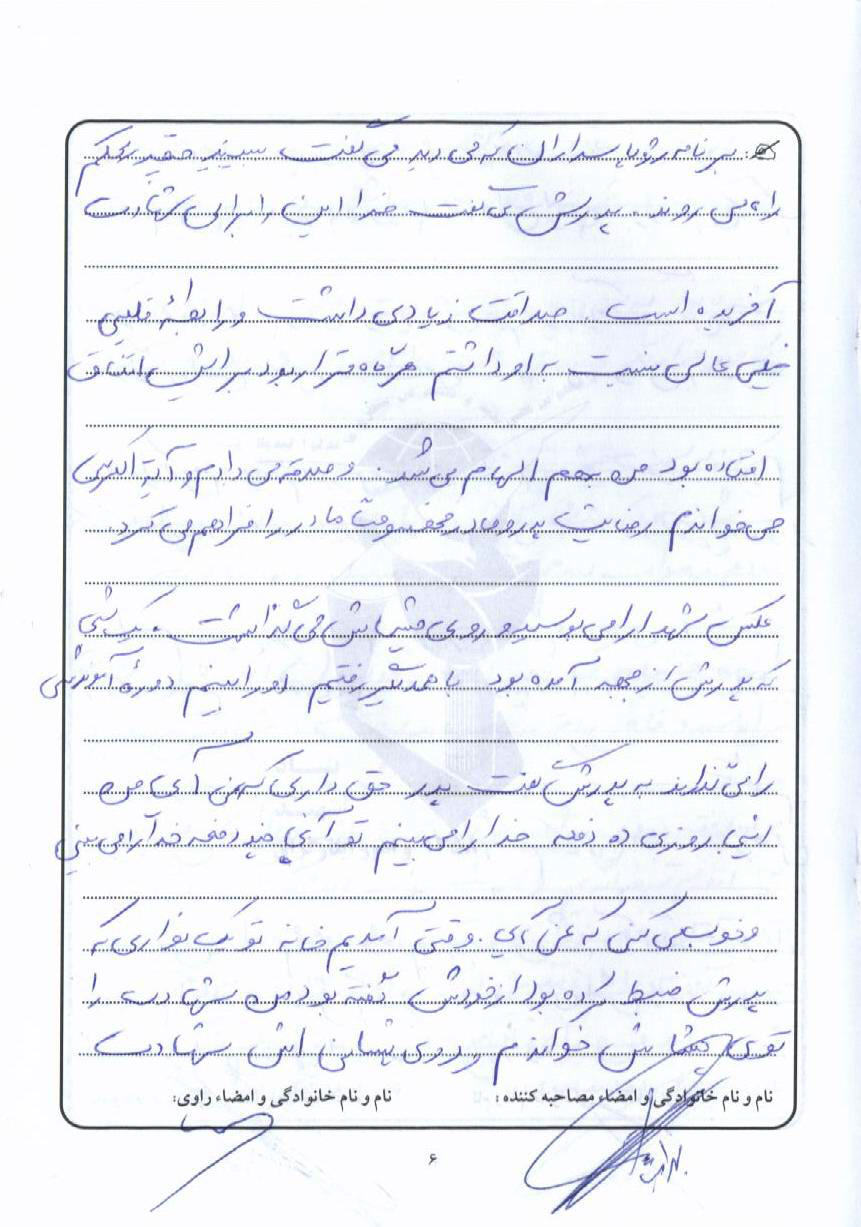 برنامه رژه پاسداران که می دید می گفت ببینید چقدر محکم
راه می روند. پدرش می گفت خدا این را برای شهادت
آفریده است. صداقت زیادی داشت و رابطهٔ قلبی
خیلی عالی نسبت به او داشتم هرگاه قرار بود برایش اتفاق
افتاده بود من بهم الهام می شد. و صدقه می دادم و آیة الکرسی
می خواندم رضایت پدر و مادر مخصوصاً مادر را فراهم می کرد.
عکس شهدا را می بوسید و روی چشمانش می گذاشت. یک شبی
که پدرش از جبهه آمده بود با همدیگر رفتیم او را ببینیم دورهٔ آموزشی
را می گذراند به پدرش گفت پدر حق داری که نمی آی من
اینجا روزی ده دفعه خدا را می بینم تو آنجا چند دفعه خدا را می بینی
و خوب می کنی که نمی آیی. وقتی آمدیم خانه تو یک نواری که
پدرش ضبط کرده بود از خودش گفته بود من شهادت را
توی چشمانش خواندم و روی پیشانی اش شهادت
نام و نام خانوادگی و امضاء مصاحبه کننده: نام و نام خانوادگی و امضاء راوی:
۶